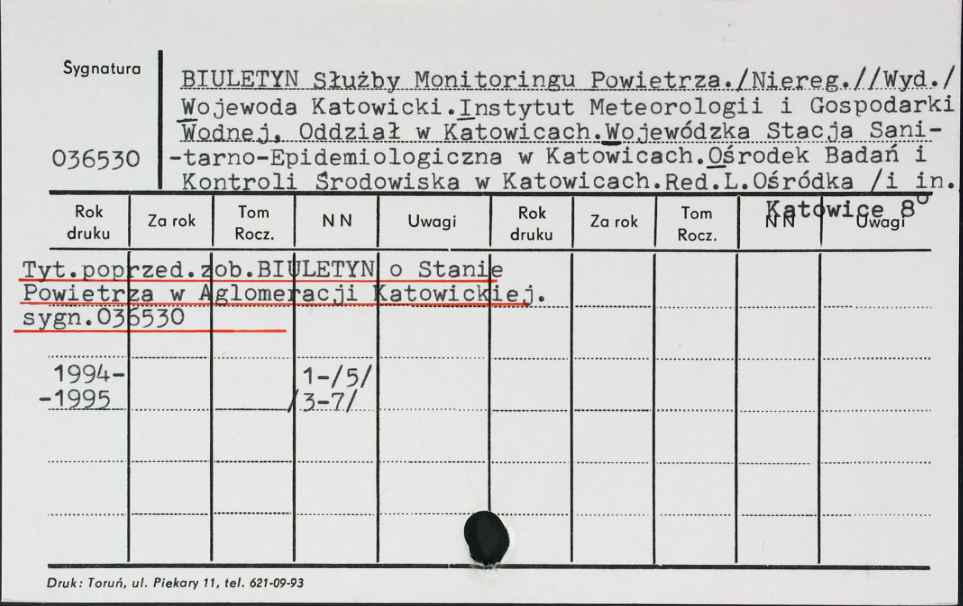 Sygnatura
036530
BIULETYN Służby Monitoringu Powietrza./Niereg.//Wyd./
Wojewoda Katowicki.Instytut Meteorologii i Gospodarki
Wodnej, Oddział w Katowicach.Wojewódzka Stacja Sani-
-tarno-Epidemiologiczna w Katowicach.Ośrodek Badań i
Kontroli Środowiska w Katowicach.Red.L.Ośródka /i in.
Katowice 8°
Rok druku Za rok Tom Rocz. N N Uwagi Rok druku Za rok Tom Rocz. N N Uwagi
Tyt.poprzed.zob.BIULETYN o Stanie
Powietrza w Aglomeracji Katowickiej.
sygn.036530
1994- 1-/5/
-1995 /3-7/
Druk: Toruń, ul. Piekary 11, tel. 621-09-93